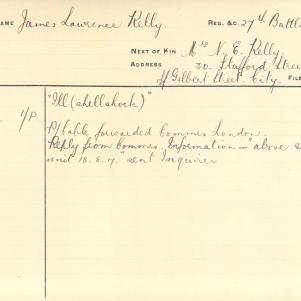 NAME James Lawrence Kelly. REG. &C. 27th Battln
NEXT OF KIN Mrs N. E. Kelly.
ADDRESS 30. Stafford Stree
off Gilbert Street. City. FILE
1/P "Ill (shellshock)"
P/Cable forwarded Commrs London.
Reply from Commrs. Information - "above s
unit 18.8.17." sent Inquirer